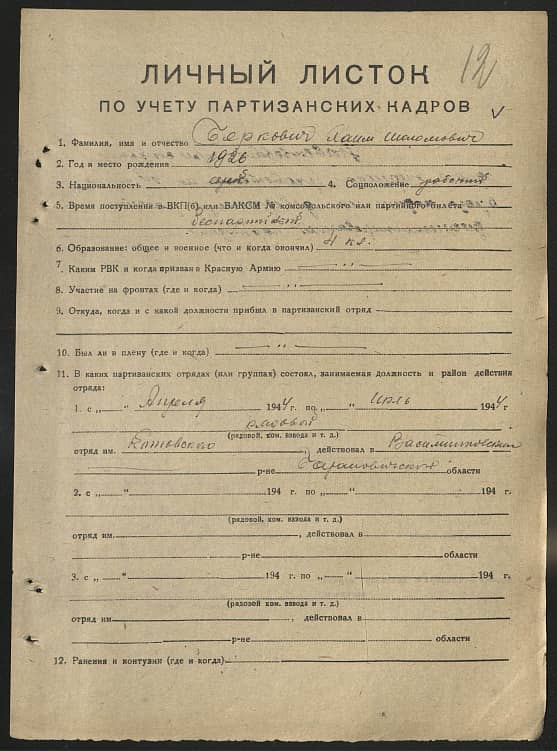 12
ЛИЧНЫЙ ЛИСТОК
ПО УЧЕТУ ПАРТИЗАНСКИХ КАДРОВ
1. Фамилия, имя и отчество Беркович Хаим Шоломович
2. Год и место рождения 1926
3. Национальность еврей 4. Соцположение рабочий
5. Время поступления в ВКП(б) или ВЛКСМ № комсомольского или партийного билета
беспартийный
6. Образование: общее и военное (что и когда окончил) 4 кл.
7. Каким РВК и когда призван в Красную Армию — „ —
8. Участие на фронтах (где и когда) — „ —
9. Откуда, когда и с какой должности прибыл в партизанский отряд
10. Был ли в плену (где и когда) — „ —
11. В каких партизанских отрядах (или группах) состоял, занимаемая должность и район действия
отряда:
1. с „ — “ Апреля 1944 г. по „ — “ Июль 1944 г
рядовой
(рядовой, ком. взвода и т. д.)
отряд им. Котовского, действовал в Василишковском
р-не Барановичской области
2. с „ — “ 194 г. по „ — “ 194 г.
(рядовой, ком. взвода и т. д.)
отряд им. , действовал в
р-не области
3. с „ — “ 194 г. по „ — “ 194 г.
(рядовой ком. взвода и т. д.)
отряд им. , действовал в
р-не области
12. Ранения и контузии (где и когда)